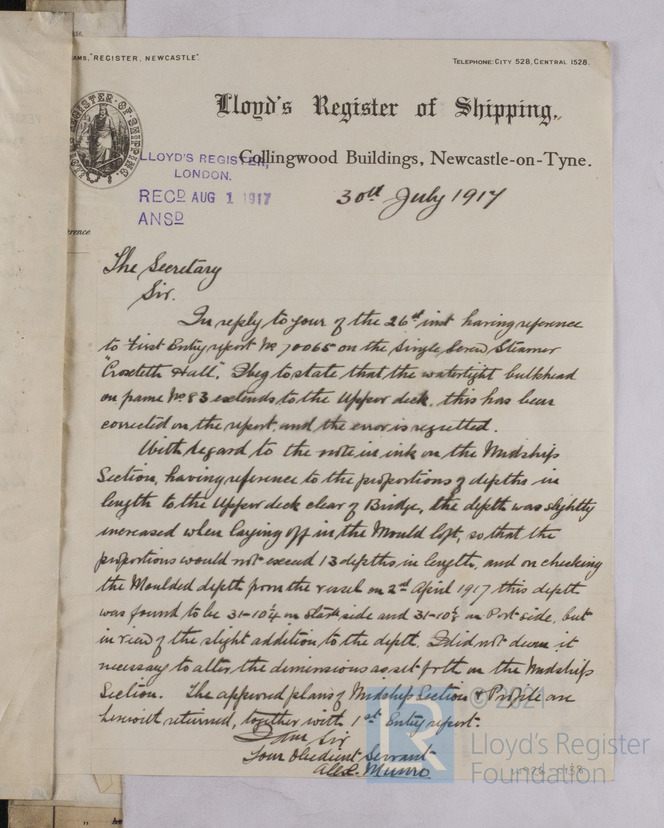 AMS, "REGISTER, NEWCASTLE".
TELEPHONE: CITY 528, CENTRAL 1528.
Lloyd's Register of Shipping,
Collingwood Buildings, Newcastle-on-Tyne.
LLOYD'S REGISTER OF SHIPPING
LLOYD'S REGISTER,
LONDON.
RECD AUG 1 1917
ANSD
30th July 1917
erence
The Secretary
Sir.
In reply to your of the 26th inst having reference
to First Entry report No 70065 on the Single Screw Steamer
"Croxteth Hall". I beg to state that the watertight bulkhead
on frame No 83 extends to the Upper deck, this has been
corrected on the report, and the error is regretted.
With regard to the note in ink on the Midship
Section, having reference to the proportions of depths in
length to the Upper deck clear of Bridge, the depth was slightly
increased when laying off in the Mould loft, so that the
proportions would not exceed 13 depths in length, and on checking
the Moulded depth from the vessel on 2nd April 1917 this depth
was found to be 31-10¼ on Starb side and 31-10⅛ on Port side, but
in view of the slight addition to the depth, I did not deem it
necessary to alter the dimensions as set forth on the Midship
Section. The approved plans of Midship Section & Profile are
herewith returned, together with 1st Entry report.
I am Sir
Your Obedient Servant
Munro
© 2021
Lloyd's Register
Foundation